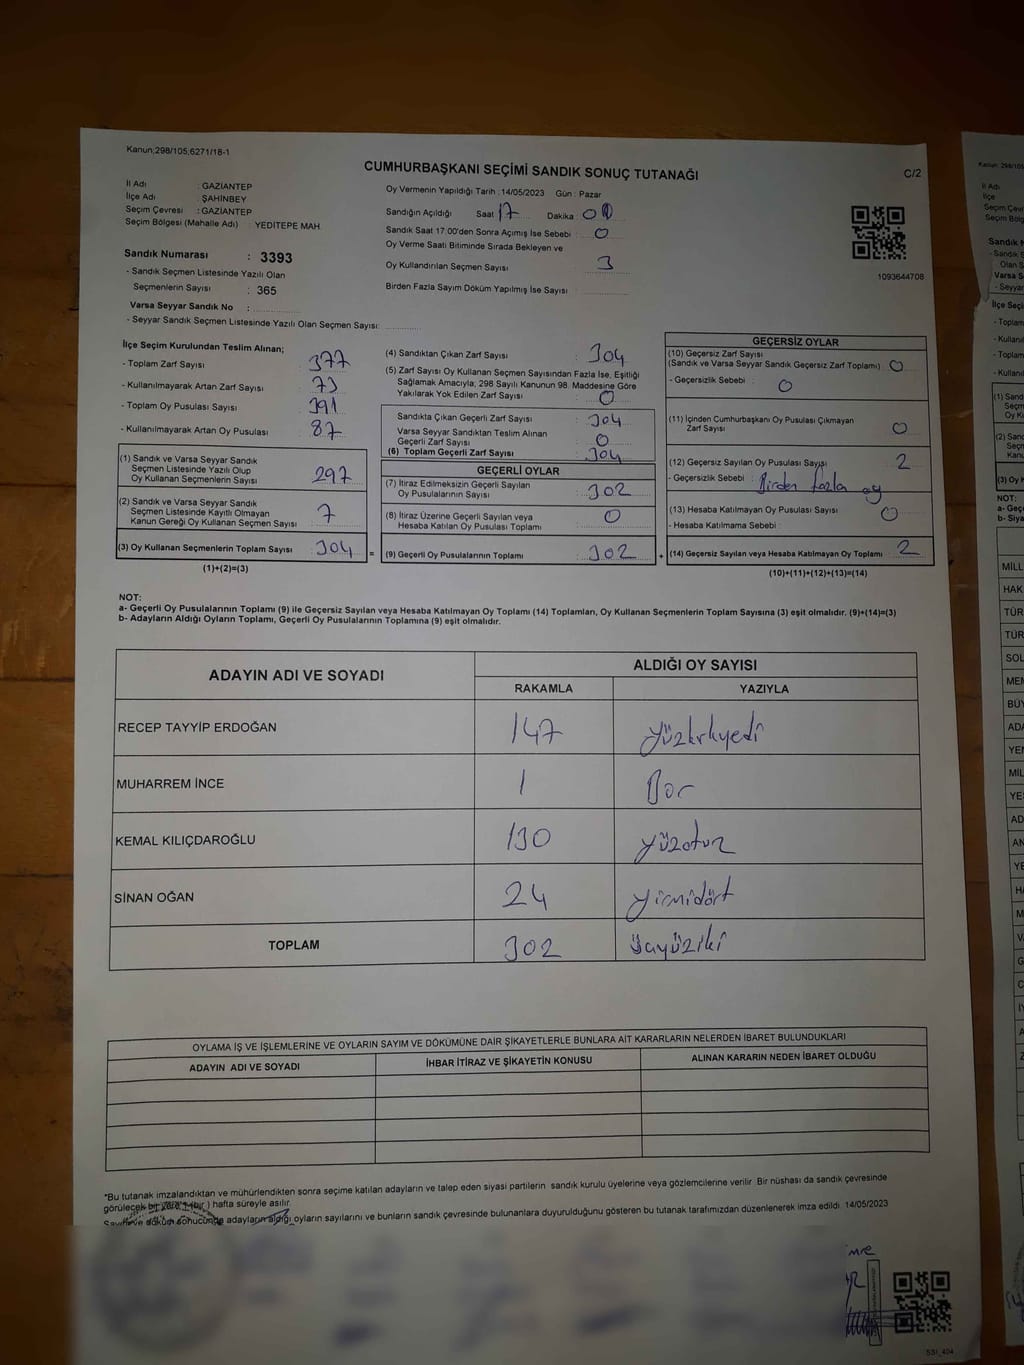 Kanun;298/105,6271/18-1
CUMHURBAŞKANI SEÇİMİ SANDIK SONUÇ TUTANAĞI
C/2
İl Adı : GAZİANTEP
İlçe Adı : ŞAHİNBEY
Seçim Çevresi : GAZİANTEP
Seçim Bölgesi (Mahalle Adı) : YEDİTEPE MAH.
Oy Vermenin Yapıldığı Tarih : 14/05/2023 Gün : Pazar
Sandığın Açıldığı Saat 17 Dakika : 00
Sandık Saat 17:00'den Sonra Açımış İse Sebebi : 0
Oy Verme Saati Bitiminde Sırada Bekleyen ve
Oy Kullandırılan Seçmen Sayısı : 3
Birden Fazla Sayım Döküm Yapılmış İse Sayısı :
1093644708
Sandık Numarası : 3393
- Sandık Seçmen Listesinde Yazılı Olan
Seçmenlerin Sayısı : 365
Varsa Seyyar Sandık No :
- Seyyar Sandık Seçmen Listesinde Yazılı Olan Seçmen Sayısı:
İlçe Seçim Kurulundan Teslim Alınan;
- Toplam Zarf Sayısı : 377
- Kullanılmayarak Artan Zarf Sayısı : 73
- Toplam Oy Pusulası Sayısı : 391
- Kullanılmayarak Artan Oy Pusulası : 87
(1) Sandık ve Varsa Seyyar Sandık
Seçmen Listesinde Yazılı Olup
Oy Kullanan Seçmenlerin Sayısı : 297
(2) Sandık ve Varsa Seyyar Sandık
Seçmen Listesinde Kayıtlı Olmayan
Kanun Gereği Oy Kullanan Seçmen Sayısı : 7
(3) Oy Kullanan Seçmenlerin Toplam Sayısı : 304 =
(1)+(2)=(3)
(4) Sandıktan Çıkan Zarf Sayısı : 304
(5) Zarf Sayısı Oy Kullanan Seçmen Sayısından Fazla İse, Eşitliği
Sağlamak Amacıyla; 298 Sayılı Kanunun 98. Maddesine Göre
Yakılarak Yok Edilen Zarf Sayısı : 0
Sandıkta Çıkan Geçerli Zarf Sayısı : 304
Varsa Seyyar Sandıktan Teslim Alınan
Geçerli Zarf Sayısı : 0
(6) Toplam Geçerli Zarf Sayısı : 304
GEÇERLİ OYLAR
(7) İtiraz Edilmeksizin Geçerli Sayılan
Oy Pusulalarının Sayısı : 302
(8) İtiraz Üzerine Geçerli Sayılan veya
Hesaba Katılan Oy Pusulası Toplamı : 0
(9) Geçerli Oy Pusulalarının Toplamı : 302 +
GEÇERSİZ OYLAR
(10) Geçersiz Zarf Sayısı
(Sandık ve Varsa Seyyar Sandık Geçersiz Zarf Toplamı) : 0
- Geçersizlik Sebebi : 0
(11) İçinden Cumhurbaşkanı Oy Pusulası Çıkmayan
Zarf Sayısı : 0
(12) Geçersiz Sayılan Oy Pusulası Sayısı : 2
- Geçersizlik Sebebi : Birden fazla oy
(13) Hesaba Katılmayan Oy Pusulası Sayısı : 0
- Hesaba Katılmama Sebebi :
(14) Geçersiz Sayılan veya Hesaba Katılmayan Oy Toplamı : 2
(10)+(11)+(12)+(13)=(14)
NOT:
a- Geçerli Oy Pusulalarının Toplamı (9) ile Geçersiz Sayılan veya Hesaba Katılmayan Oy Toplamı (14) Toplamları, Oy Kullanan Seçmenlerin Toplam Sayısına (3) eşit olmalıdır. (9)+(14)=(3)
b- Adayların Aldığı Oyların Toplamı, Geçerli Oy Pusulalarının Toplamına (9) eşit olmalıdır.
ADAYIN ADI VE SOYADI ALDIĞI OY SAYISI
RAKAMLA YAZIYLA
RECEP TAYYİP ERDOĞAN 147 yüzkırkyedi
MUHARREM İNCE 1 Bir
KEMAL KILIÇDAROĞLU 130 yüzotuz
SİNAN OĞAN 24 yirmidört
TOPLAM 302 üçyüziki
OYLAMA İŞ VE İŞLEMLERİNE VE OYLARIN SAYIM VE DÖKÜMÜNE DAİR ŞİKAYETLERLE BUNLARA AİT KARARLARIN NELERDEN İBARET BULUNDUKLARI
ADAYIN ADI VE SOYADI İHBAR İTİRAZ VE ŞİKAYETİN KONUSU ALINAN KARARIN NEDEN İBARET OLDUĞU
*Bu tutanak imzalandıktan ve mühürlendikten sonra seçime katılan adayların ve talep eden siyasi partilerin sandık kurulu üyelerine veya gözlemcilerine verilir. Bir nüshası da sandık çevresinde
görülecek bir yere 1 (bir ) hafta süreyle asılır.
Sayım ve döküm sonucunda adayların aldığı oyların sayılarını ve bunların sandık çevresinde bulunanlara duyurulduğunu gösteren bu tutanak tarafımızdan düzenlenerek imza edildi. 14/05/2023
SSI_404